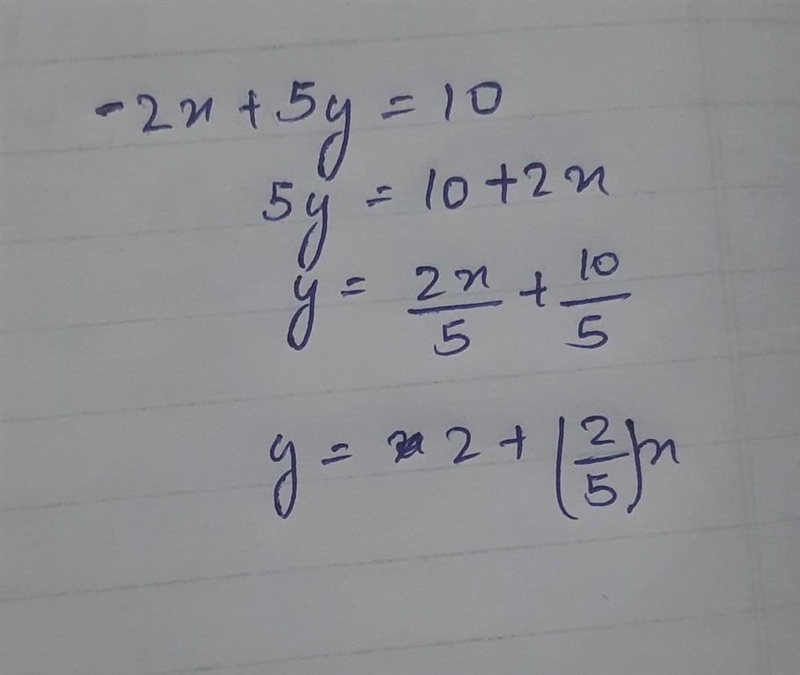 -2x + 5y = 10
5y = 10 + 2x
y = 2x/5 + 10/5
y = 2 + (2/5)x